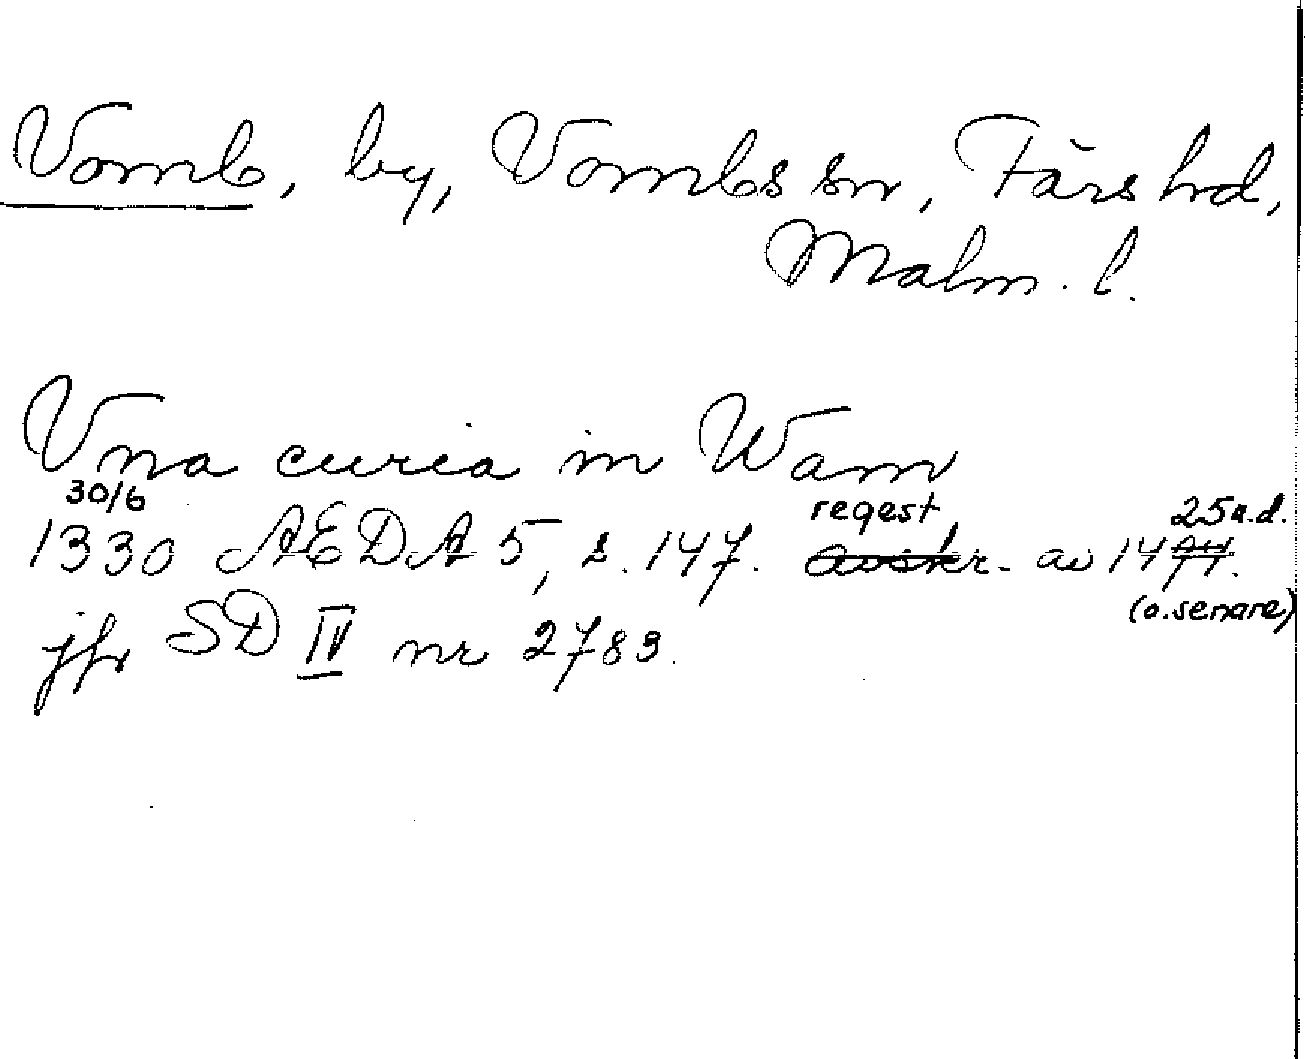 Vomb, by, Vombs sn, Färs hd,
Malm. l.
Vna curia in Wam
30/6 regest 25 a.d.
1330 AEDA 5, s. 147. avskr. av 1474.
(o. senare)
jfr SD IV nr 2783.